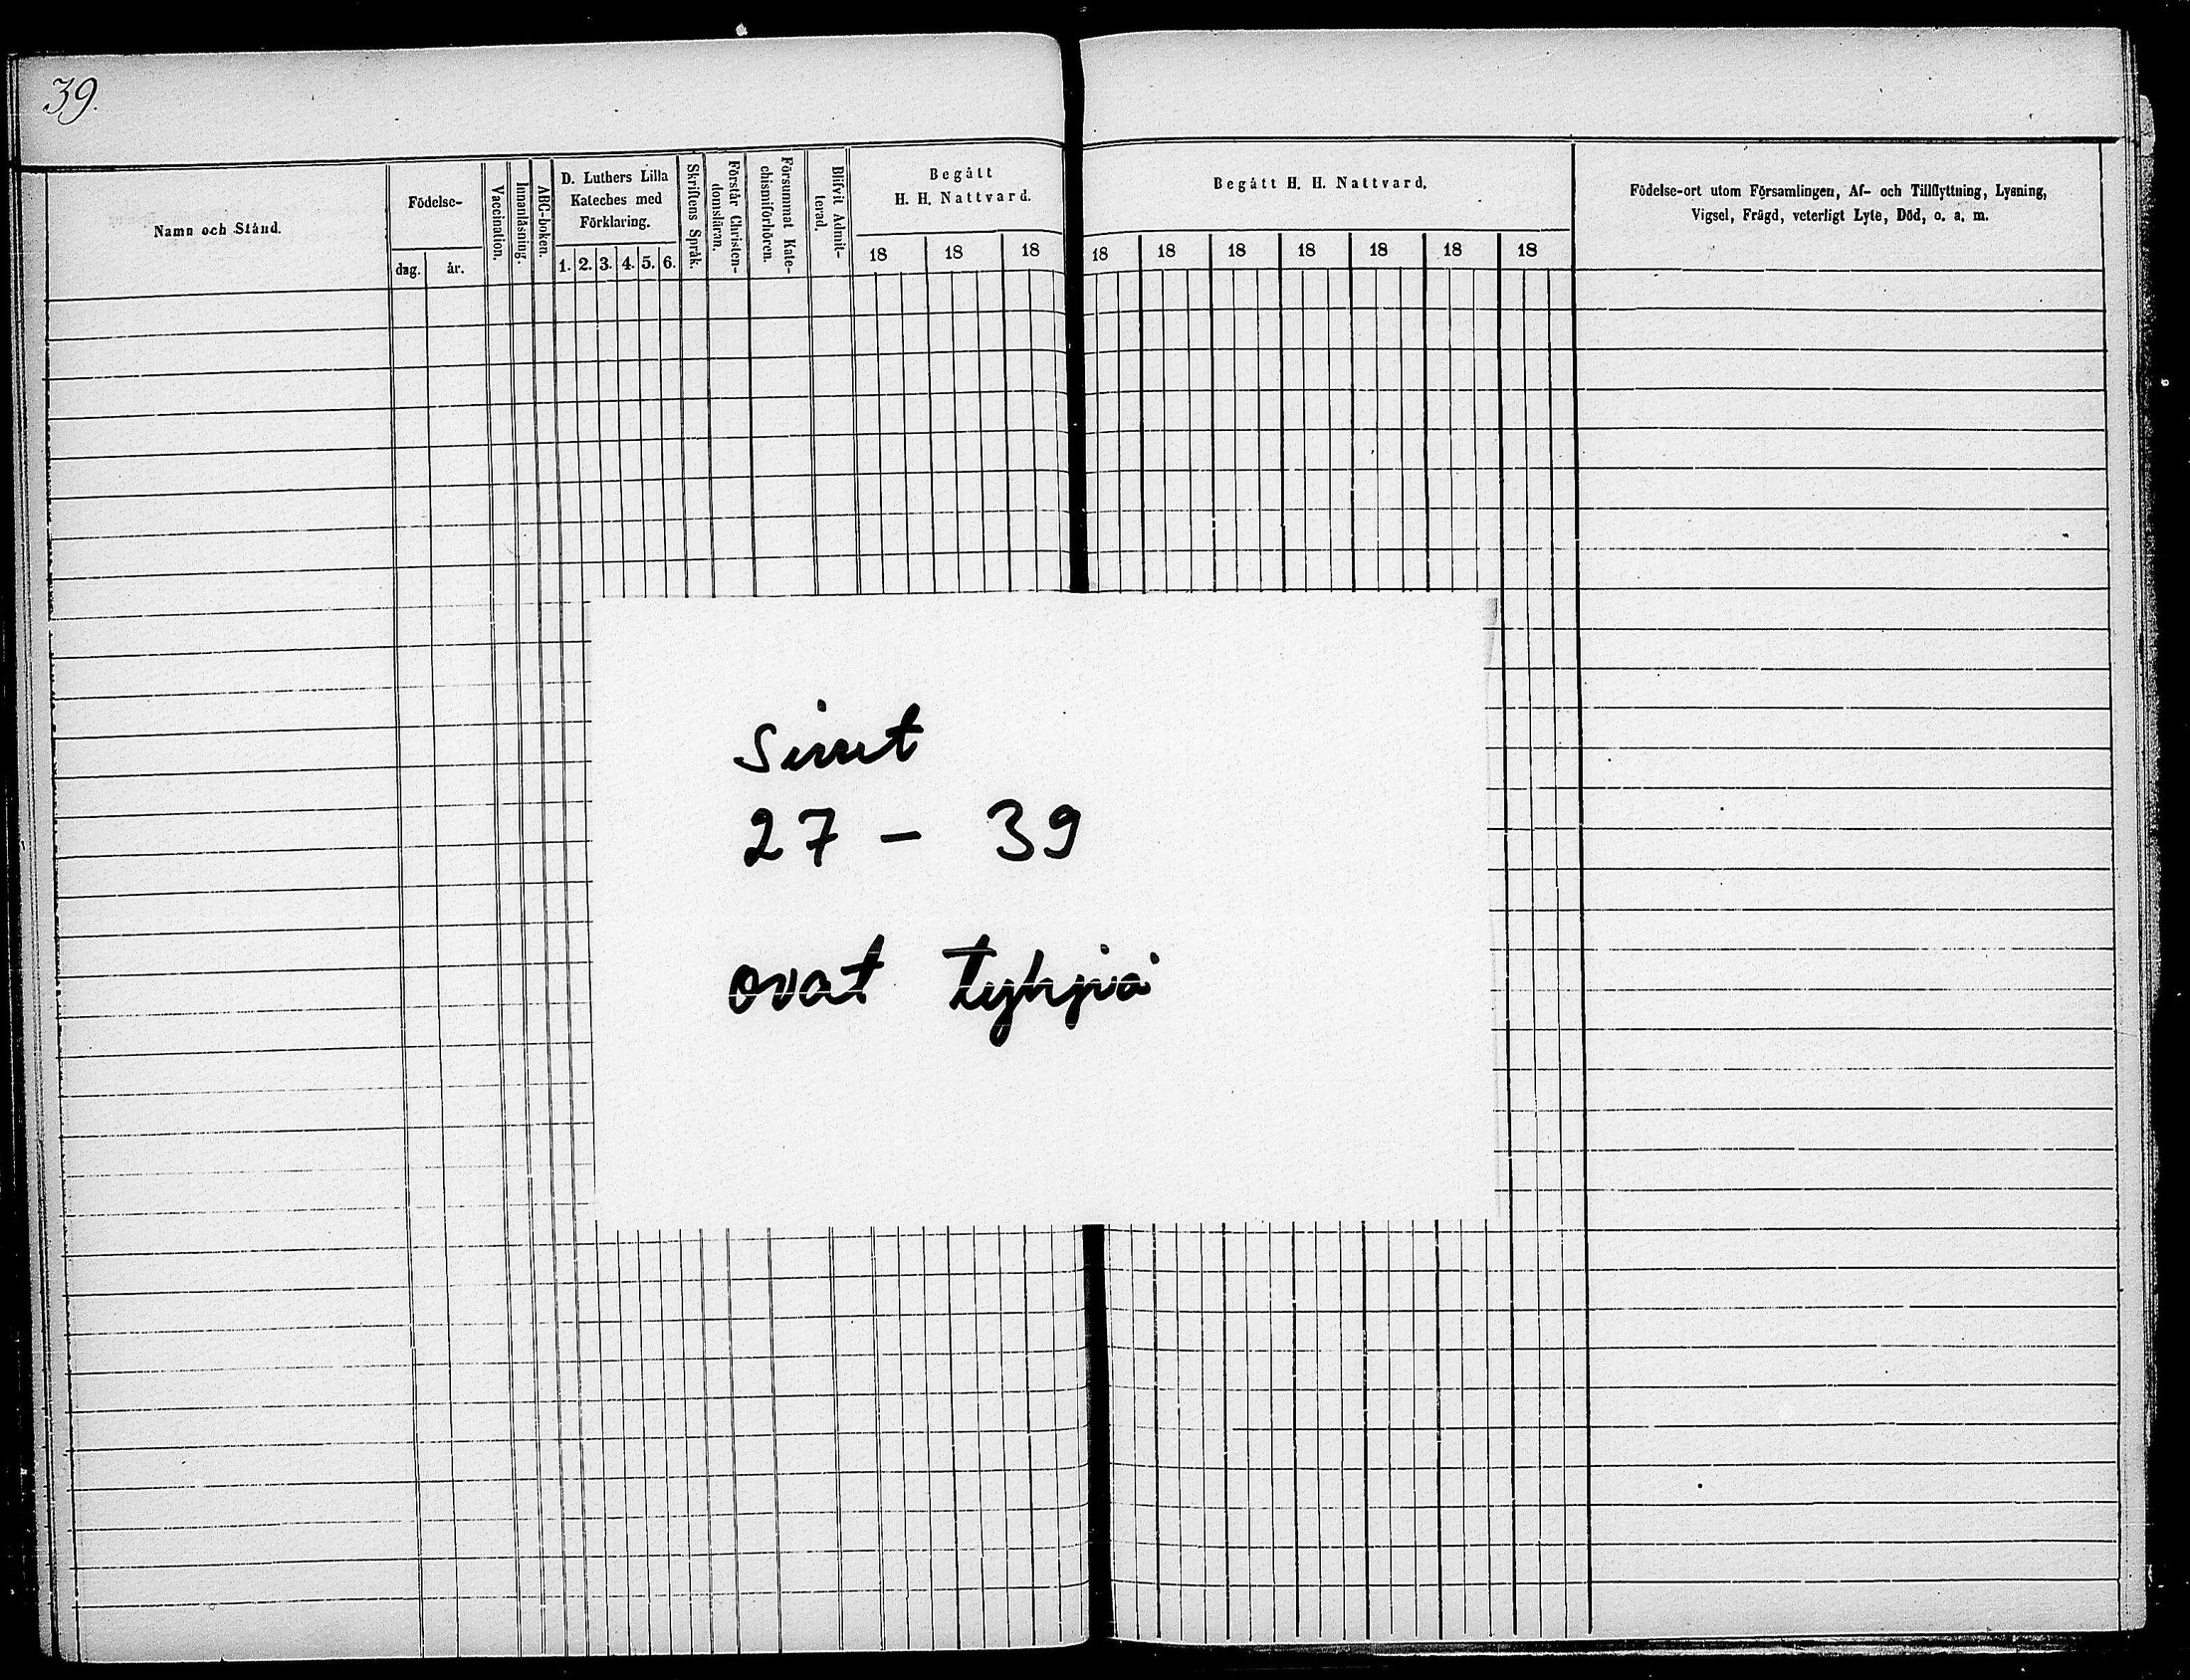 39.
Namn och Stånd.
Födelse-
dag.
år.
Vaccination.
Innanläsning.
ABC-boken.
D. Luthers Lilla
Kateches med
Förklaring.
1. 2. 3. 4. 5. 6.
Skriftens Språk.
Förstår Christen-
domsläran.
Försummat Kate-
chismiförhören.
Blifvit Admit-
terad.
Begått
H. H. Nattvard.
18 18 18
Begått H. H. Nattvard.
18 18 18 18 18 18 18
Födelse-ort utom Församlingen, Af- och Tillflyttning, Lysning,
Vigsel, Frägd, veterligt Lyte, Död, o. a. m.
Sivut
27 - 39
ovat tyhjiä